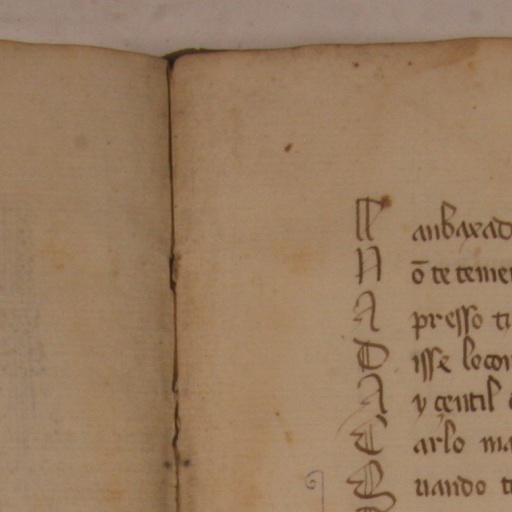 L anbaxad
N õ te temer
A presso ti
D isse lo con
A y çentil
C arlo ma
Q uando t